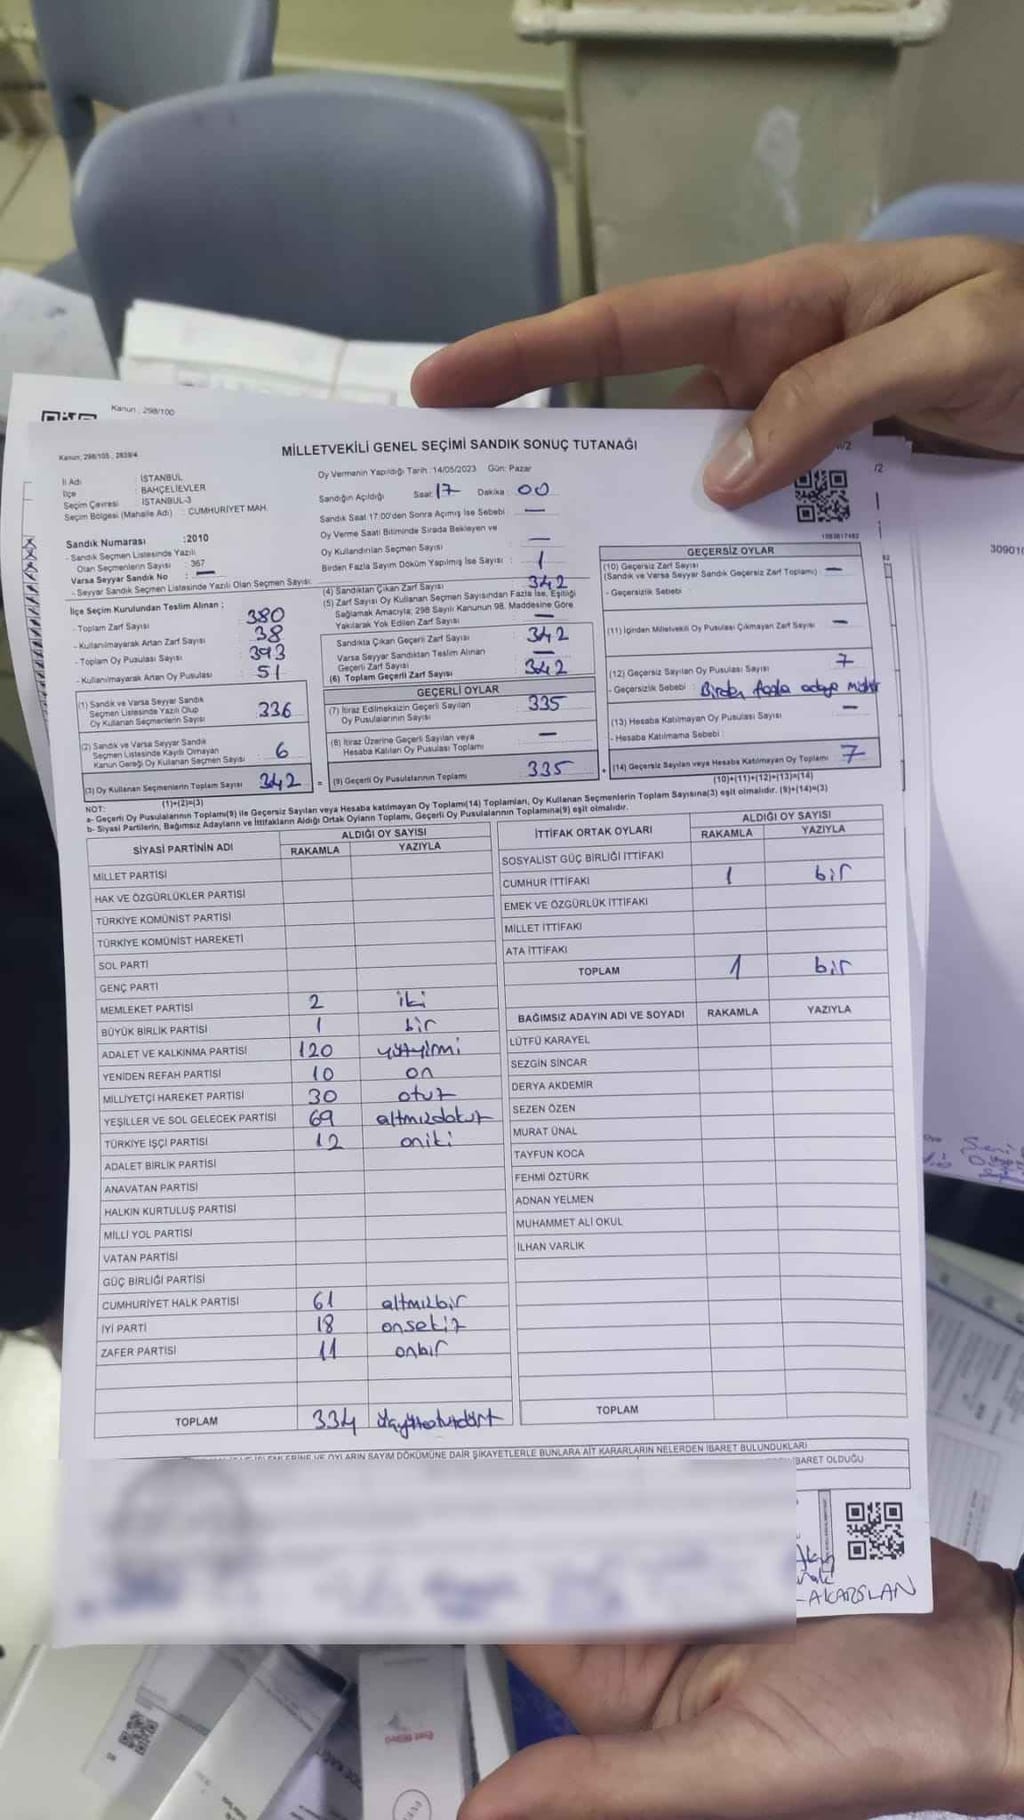 Kanun : 298/100
Kanun: 298/105 , 2839/4
MİLLETVEKİLİ GENEL SEÇİMİ SANDIK SONUÇ TUTANAĞI
İl Adı : İSTANBUL
İlçe : BAHÇELİEVLER
Seçim Çevresi : İSTANBUL-3
Seçim Bölgesi (Mahalle Adı) : CUMHURİYET MAH.
Sandık Numarası :2010
- Sandık Seçmen Listesinde Yazılı
Olan Seçmenlerin Sayısı : 367
Varsa Seyyar Sandık No : —
- Seyyar Sandık Seçmen Listesinde Yazılı Olan Seçmen Sayısı:
İlçe Seçim Kurulundan Teslim Alınan ;
- Toplam Zarf Sayısı 380
- Kullanılmayarak Artan Zarf Sayısı 38
- Toplam Oy Pusulası Sayısı 393
- Kullanılmayarak Artan Oy Pusulası 51
(1) Sandık ve Varsa Seyyar Sandık
Seçmen Listesinde Yazılı Olup
Oy Kullanan Seçmenlerin Sayısı 336
(2) Sandık ve Varsa Seyyar Sandık
Seçmen Listesinde Kayıtlı Olmayan
Kanun Gereği Oy Kullanan Seçmen Sayısı 6
(3) Oy Kullanan Seçmenlerin Toplam Sayısı 342 =
(1)+(2)=(3)
Oy Vermenin Yapıldığı Tarih :14/05/2023 Gün: Pazar
Sandığın Açıldığı Saat: 17 Dakika : 00
Sandık Saat 17:00'den Sonra Açılmış İse Sebebi : —
Oy Verme Saati Bitiminde Sırada Bekleyen ve
Oy Kullandırılan Seçmen Sayısı : —
Birden Fazla Sayım Döküm Yapılmış İse Sayısı : 1
(4) Sandıktan Çıkan Zarf Sayısı 342
(5) Zarf Sayısı Oy Kullanan Seçmen Sayısından Fazla İse, Eşitliği
Sağlamak Amacıyla; 298 Sayılı Kanunun 98. Maddesine Göre
Yakılarak Yok Edilen Zarf Sayısı —
Sandıkta Çıkan Geçerli Zarf Sayısı 342
Varsa Seyyar Sandıktan Teslim Alınan
Geçerli Zarf Sayısı —
(6) Toplam Geçerli Zarf Sayısı 342
GEÇERLİ OYLAR
(7) İtiraz Edilmeksizin Geçerli Sayılan
Oy Pusulalarının Sayısı 335
(8) İtiraz Üzerine Geçerli Sayılan veya
Hesaba Katılan Oy Pusulası Toplamı —
(9) Geçerli Oy Pusulalarının Toplamı 335 +
/2
/2
1083817482
GEÇERSİZ OYLAR
(10) Geçersiz Zarf Sayısı —
(Sandık ve Varsa Seyyar Sandık Geçersiz Zarf Toplamı)
- Geçersizlik Sebebi :
(11) İçinden Milletvekili Oy Pusulası Çıkmayan Zarf Sayısı —
(12) Geçersiz Sayılan Oy Pusulası Sayısı 7
- Geçersizlik Sebebi : Birden fazla
(13) Hesaba Katılmayan Oy Pusulası Sayısı —
- Hesaba Katılmama Sebebi :
(14) Geçersiz Sayılan veya Hesaba Katılmayan Oy Toplamı 7
(10)+(11)+(12)+(13)=(14)
NOT:
a- Geçerli Oy Pusulalarının Toplamı(9) ile Geçersiz Sayılan veya Hesaba katılmayan Oy Toplamı(14) Toplamları, Oy Kullanan Seçmenlerin Toplam Sayısına(3) eşit olmalıdır. (9)+(14)=(3)
b- Siyasi Partilerin, Bağımsız Adayların ve İttifakların Aldığı Ortak Oyların Toplamı, Geçerli Oy Pusulalarının Toplamına(9) eşit olmalıdır.
SİYASİ PARTİNİN ADI ALDIĞI OY SAYISI
RAKAMLA YAZIYLA
MİLLET PARTİSİ
HAK VE ÖZGÜRLÜKLER PARTİSİ
TÜRKİYE KOMÜNİST PARTİSİ
TÜRKİYE KOMÜNİST HAREKETİ
SOL PARTİ
GENÇ PARTİ
MEMLEKET PARTİSİ 2 iki
BÜYÜK BİRLİK PARTİSİ 1 bir
ADALET VE KALKINMA PARTİSİ 120 yüzyirmi
YENİDEN REFAH PARTİSİ 10 on
MİLLİYETÇİ HAREKET PARTİSİ 30 otuz
YEŞİLLER VE SOL GELECEK PARTİSİ 69 altmışdokuz
TÜRKİYE İŞÇİ PARTİSİ 12 oniki
ADALET BİRLİK PARTİSİ
ANAVATAN PARTİSİ
HALKIN KURTULUŞ PARTİSİ
MİLLİ YOL PARTİSİ
VATAN PARTİSİ
GÜÇ BİRLİĞİ PARTİSİ
CUMHURİYET HALK PARTİSİ 61 altmışbir
İYİ PARTİ 18 onsekiz
ZAFER PARTİSİ 11 onbir
TOPLAM 334 üçyüzotuzdört
İTTİFAK ORTAK OYLARI ALDIĞI OY SAYISI
RAKAMLA YAZIYLA
SOSYALİST GÜÇ BİRLİĞİ İTTİFAKI
CUMHUR İTTİFAKI 1 bir
EMEK VE ÖZGÜRLÜK İTTİFAKI
MİLLET İTTİFAKI
ATA İTTİFAKI
TOPLAM 1 bir
BAĞIMSIZ ADAYIN ADI VE SOYADI RAKAMLA YAZIYLA
LÜTFÜ KARAYEL
SEZGİN SİNCAR
DERYA AKDEMİR
SEZEN ÖZEN
MURAT ÜNAL
TAYFUN KOCA
FEHMİ ÖZTÜRK
ADNAN YELMEN
MUHAMMET ALİ OKUL
İLHAN VARLIK
TOPLAM
OYLARIN SAYIM DÖKÜMÜNE DAİR ŞİKAYETLERLE BUNLARA AİT KARARLARIN NELERDEN İBARET BULUNDUKLARI
BARET OLDUĞU
AKARSLAN
30901